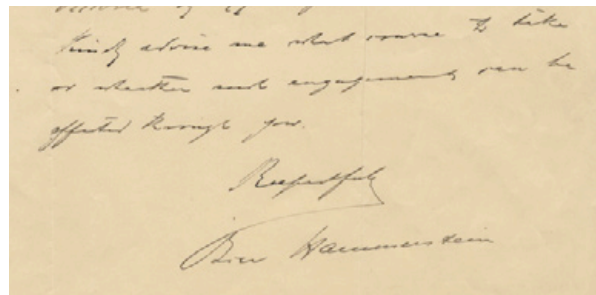 Kindly advise me what course to take
or whether such engagements can be
effected through you.
Respectfully
Oscar Hammerstein